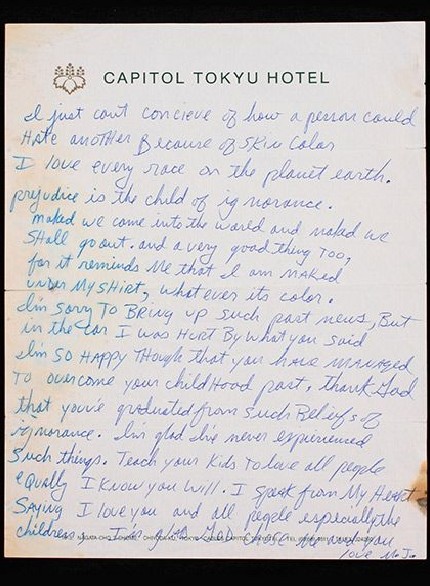 CAPITOL TOKYU HOTEL
I just cant concieve of how a person could
Hate another Because of Skin Color
I love every race on the planet earth.
prejudice is the child of ignorance.
naked we come into the world and naked we
SHall go out. and a very good thing TOO,
for it reminds Me that I am NAKED
under My SHirt, whatever its color.
I'm sorry TO BRing up such past news, But
in the car I was HURT By what you said
I'm SO HAPPY THough that you HAVE MANAGED
TO overcome your childHood past. thank God
that you've graduated from such Beliefs of
ignorance. I'm glad I've never experienced
Such things. Teach your Kids To love all people
equally I know you will. I speak from My Heart
SAYing I love you and all people especially the
children I'm glad God chose Me and you
love M.J.